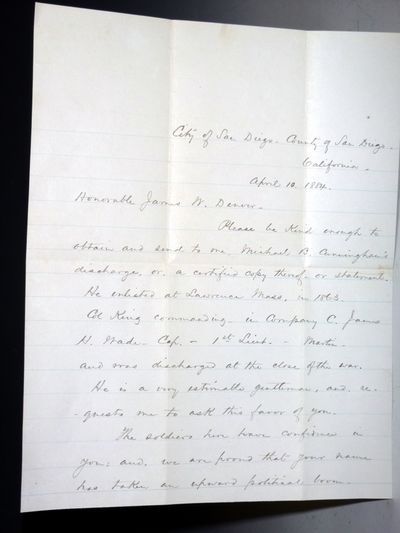 City of San Diego - County of San Diego -
California -
April 12 1884.
Honorable James W. Denver -
Please be kind enough to
obtain and send to me, Michael B. Cunningham's
discharge, or a certified copy thereof, or statement.
He enlisted at Lawrence Mass. in 1863
Col King commanding - in Company C. James
H. Wade - Cap. - 1st Lieut. - Martin -
and was discharged at the close of the war.
He is a very estimable gentleman, and re-
-quests me to ask this favor of you.
The soldiers here have confidence in
you; and, we are proud that your name
has taken an upward political boom -